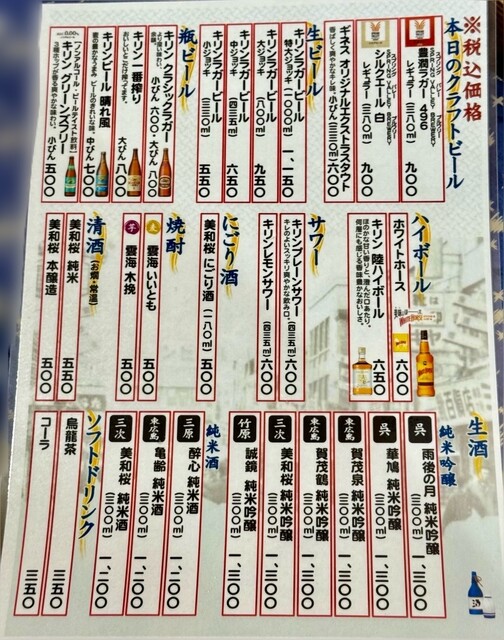 ※税込価格
本日のクラフトビール
スプリング バレー ブルワリー
SPRING VALLEY BREWERY
豊潤ラガー 496
レギュラー (三八〇㎖) 九〇〇
スプリング バレー ブルワリー
SPRING VALLEY BREWERY
シルクエール 白
レギュラー (三八〇㎖) 九〇〇
ギネス オリジナルエクストラスタウト
香ばしく爽やかな辛口。小びん(三三〇㎖)六〇〇
生ビール
キリンラガービール
特大ジョッキ (一〇〇〇㎖) 一、一五〇
キリンラガービール
大ジョッキ (八〇〇㎖) 九五〇
キリンラガービール
中ジョッキ (四三五㎖) 六五〇
キリンラガービール
小ジョッキ (三三〇㎖) 五五〇
瓶ビール
キリン・クラシックラガー
小びん 六〇〇・大びん 八〇〇
キリン一番搾り
おいしいとこだけ搾ってます。
大びん 八〇〇
キリンビール 晴れ風
中びん 七〇〇
【ノンアルコール ビールテイスト飲料】
キリン グリーンズフリー
3種ホップが香る爽やかな味わい。 小びん 五〇〇
ハイボール
ホワイトホース 六〇〇
キリン 陸ハイボール 六五〇
ほのかな甘い香りと、澄んだ口あたり。
何層にも感じる香味豊かなおいしさ。
サワー
キリンプレーンサワー (四三五㎖)六〇〇
キレのよいスッキリ爽やかな飲み口。
キリンレモンサワー (四三五㎖)六〇〇
にごり酒
美和桜 にごり酒 (一八〇㎖) 五〇〇
焼酎
麦 雲海 いいとも 五〇〇
芋 雲海 木挽 五〇〇
清酒 (お燗・常温)
美和桜 純米 五五〇
美和桜 本醸造 五〇〇
生酒
純米吟醸
呉 雨後の月 純米吟醸 (三〇〇㎖) 一、三〇〇
呉 華鳩 純米吟醸 (三〇〇㎖) 一、三〇〇
東広島 賀茂泉 純米吟醸 (三〇〇㎖) 一、三〇〇
東広島 賀茂鶴 純米吟醸 (三〇〇㎖) 一、三〇〇
三次 美和桜 純米吟醸 (三〇〇㎖) 一、三〇〇
竹原 誠鏡 純米吟醸 (三〇〇㎖) 一、三〇〇
純米酒
三原 酔心 純米酒 (三〇〇㎖) 一、二〇〇
東広島 亀齢 純米酒 (三〇〇㎖) 一、二〇〇
三次 美和桜 純米酒 (三〇〇㎖) 一、二〇〇
ソフトドリンク
烏龍茶 三五〇
コーラ 三五〇